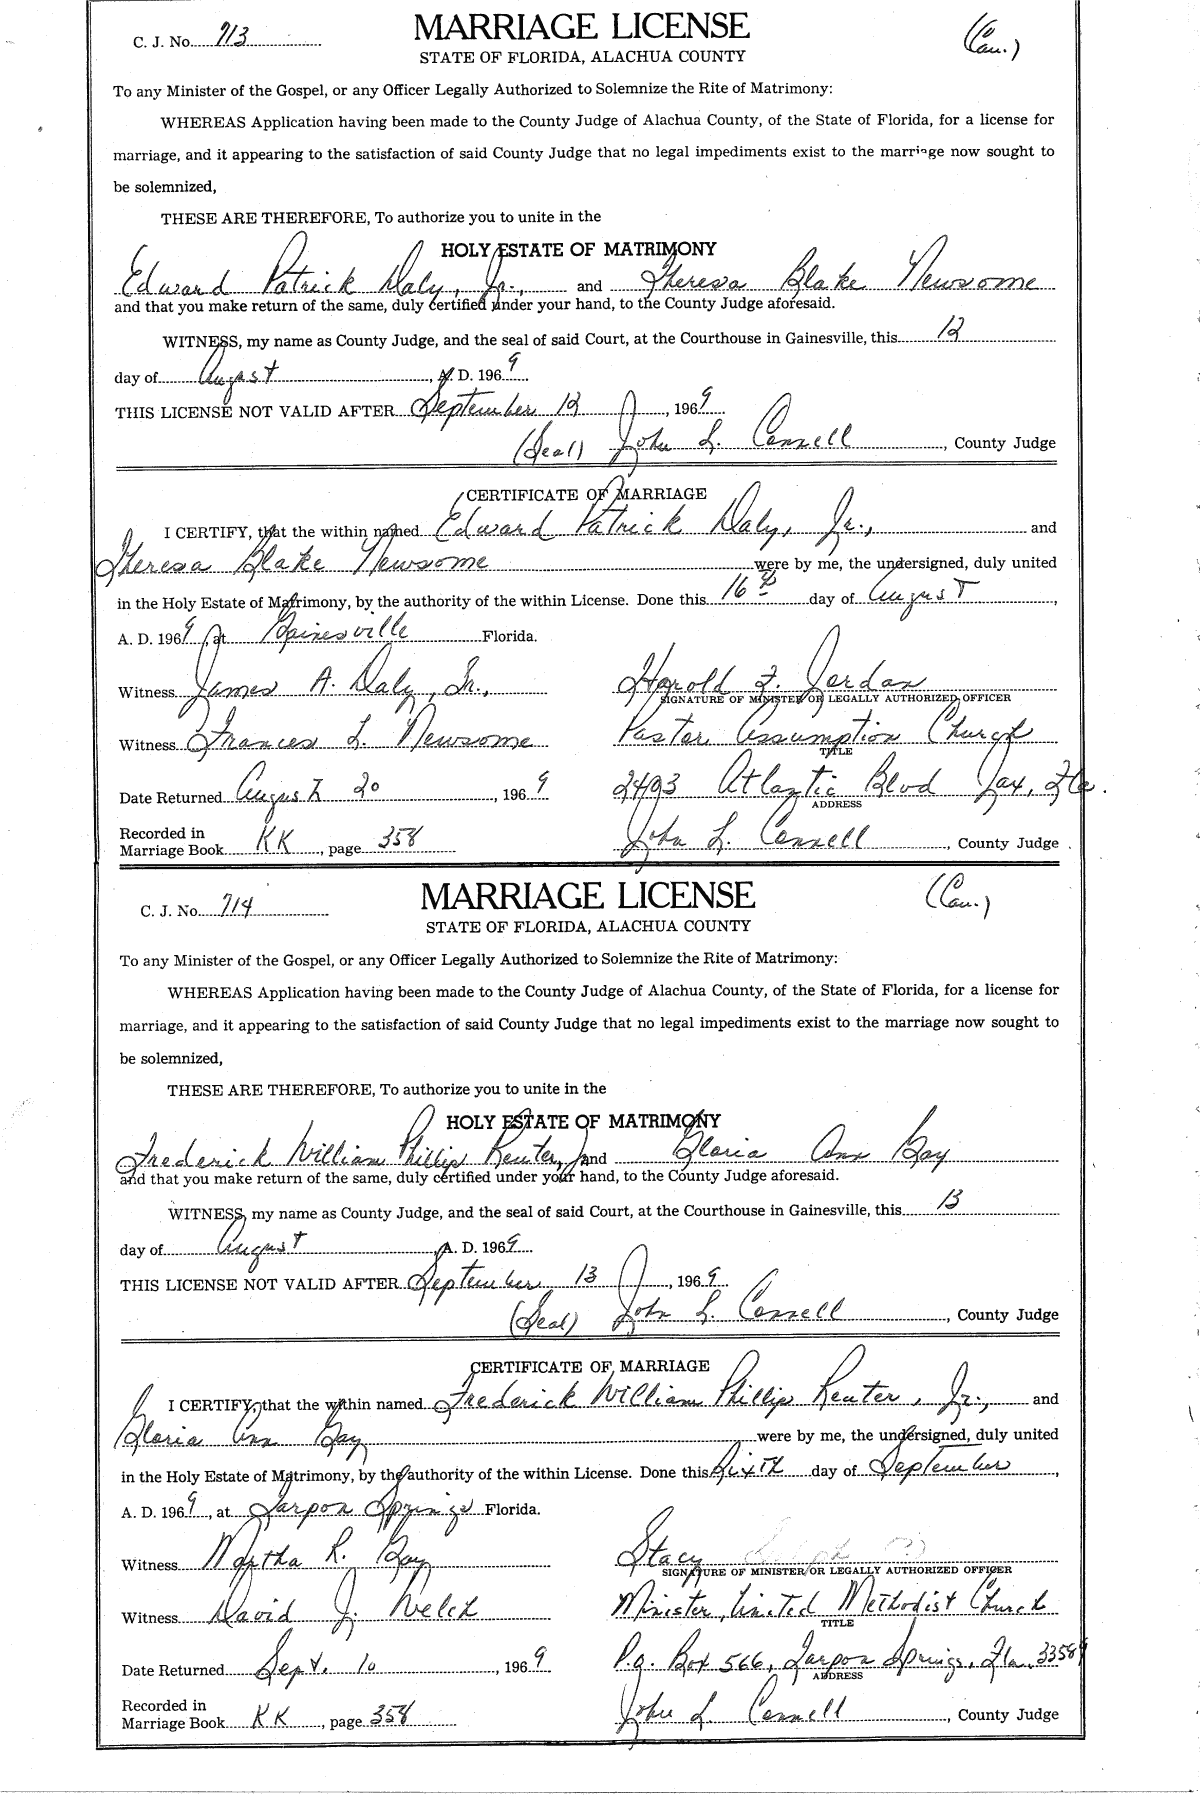 C. J. No. 713
MARRIAGE LICENSE
(Cau.)
STATE OF FLORIDA, ALACHUA COUNTY
To any Minister of the Gospel, or any Officer Legally Authorized to Solemnize the Rite of Matrimony:
WHEREAS Application having been made to the County Judge of Alachua County, of the State of Florida, for a license for
marriage, and it appearing to the satisfaction of said County Judge that no legal impediments exist to the marriage now sought to
be solemnized,
THESE ARE THEREFORE, To authorize you to unite in the
HOLY ESTATE OF MATRIMONY
Edward Patrick Daly, Jr., and Theresa Blake Newsome
and that you make return of the same, duly certified under your hand, to the County Judge aforesaid.
WITNESS, my name as County Judge, and the seal of said Court, at the Courthouse in Gainesville, this 12
day of August, A. D. 1969
THIS LICENSE NOT VALID AFTER September 12, 1969
(Seal) John L. Connell, County Judge
CERTIFICATE OF MARRIAGE
I CERTIFY, that the within named Edward Patrick Daly, Jr., and
Theresa Blake Newsome were by me, the undersigned, duly united
in the Holy Estate of Matrimony, by the authority of the within License. Done this 16th day of August,
A. D. 1969, at Gainesville Florida.
Witness James A. Daly, Sr., Harold F. Jordan
SIGNATURE OF MINISTER OR LEGALLY AUTHORIZED OFFICER
Witness Frances L. Newsome Pastor Assumption Church
TITLE
Date Returned August 20, 1969 2403 Atlantic Blvd Jax, Fla.
ADDRESS
Recorded in
Marriage Book KK, page 358 John L. Connell, County Judge
C. J. No. 714
MARRIAGE LICENSE
(Cau.)
STATE OF FLORIDA, ALACHUA COUNTY
To any Minister of the Gospel, or any Officer Legally Authorized to Solemnize the Rite of Matrimony:
WHEREAS Application having been made to the County Judge of Alachua County, of the State of Florida, for a license for
marriage, and it appearing to the satisfaction of said County Judge that no legal impediments exist to the marriage now sought to
be solemnized,
THESE ARE THEREFORE, To authorize you to unite in the
HOLY ESTATE OF MATRIMONY
Frederick William Phillip Reuter, Jr. and Gloria Ann Gay
and that you make return of the same, duly certified under your hand, to the County Judge aforesaid.
WITNESS, my name as County Judge, and the seal of said Court, at the Courthouse in Gainesville, this 13
day of August, A. D. 1969
THIS LICENSE NOT VALID AFTER September 13, 1969
(Seal) John L. Connell, County Judge
CERTIFICATE OF MARRIAGE
I CERTIFY, that the within named Frederick William Phillip Reuter, Jr., and
Gloria Ann Gay were by me, the undersigned, duly united
in the Holy Estate of Matrimony, by the authority of the within License. Done this Sixth day of September,
A. D. 1969, at Tarpon Springs Florida.
Witness Martha R. Gay Stacy
SIGNATURE OF MINISTER OR LEGALLY AUTHORIZED OFFICER
Witness David J. Welch Minister, United Methodist Church
TITLE
Date Returned Sept. 10, 1969 P.O. Box 566, Tarpon Springs, Fla. 33589
ADDRESS
Recorded in
Marriage Book KK, page 358 John L. Connell, County Judge